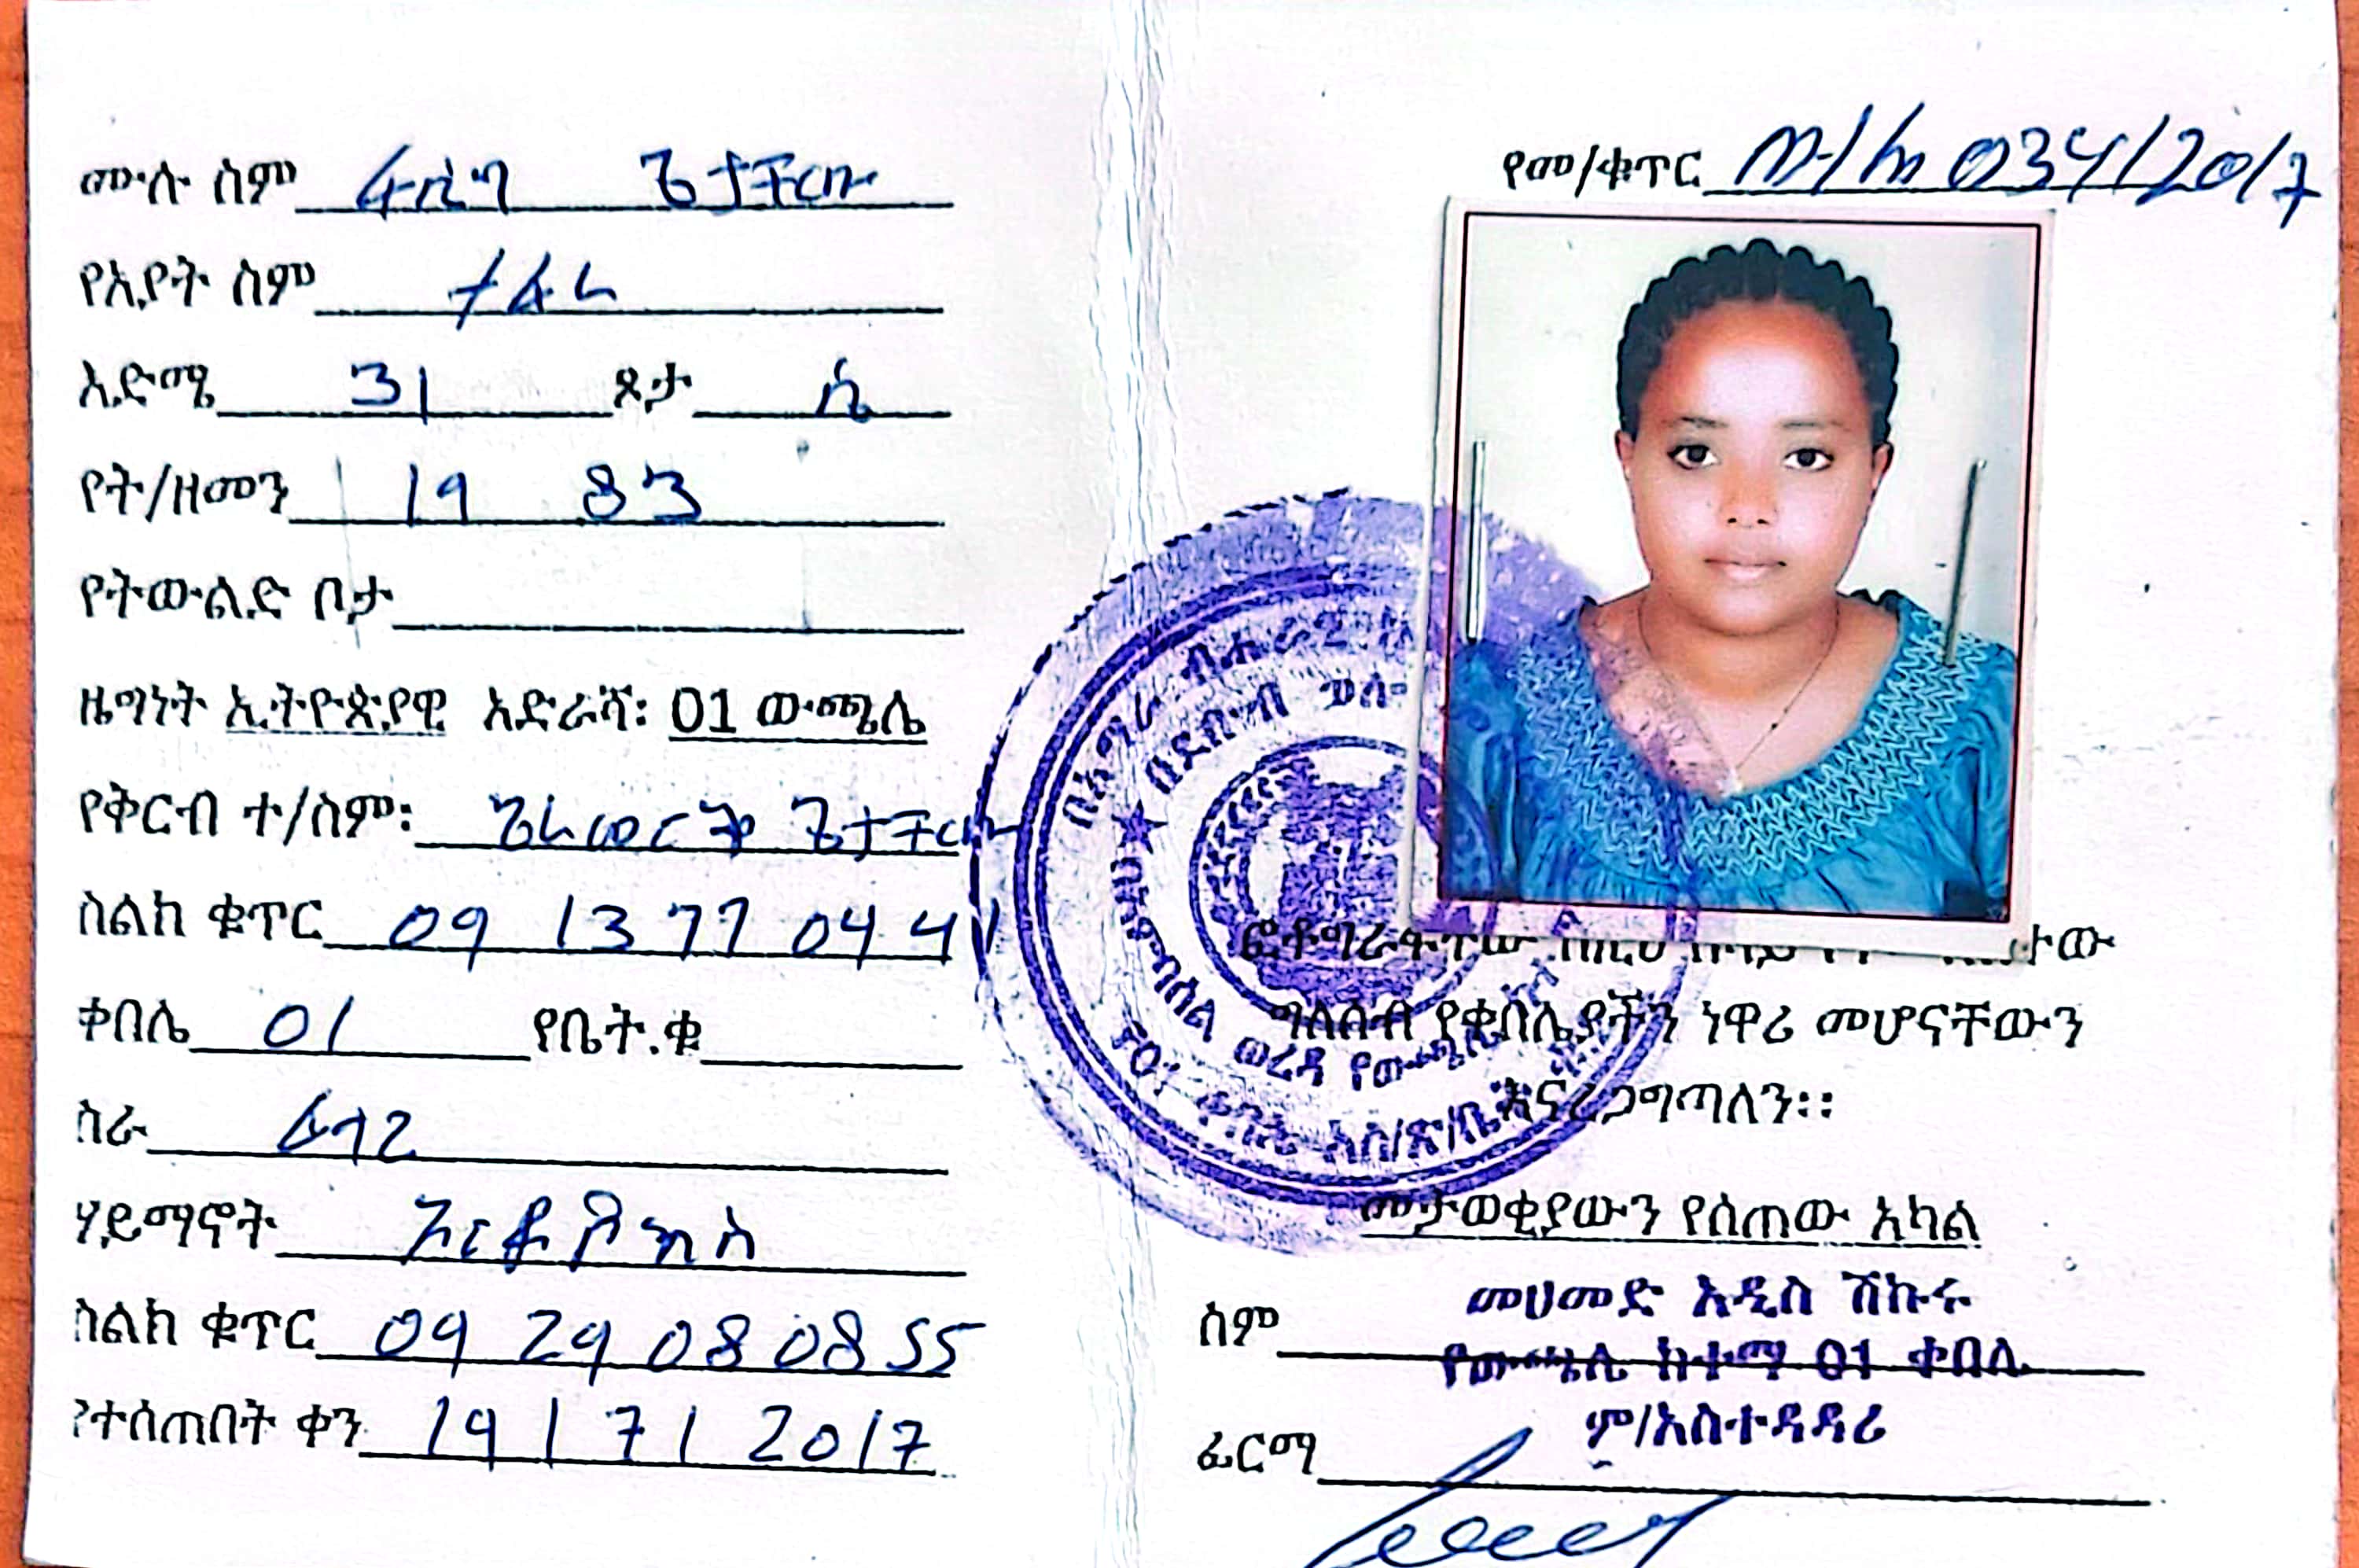 ሙሉ ስም ጌታቸው
የአያት ስም ተፈራ
እድሜ 31 ጾታ ሴ
የት/ዘመን 19 83
የትውልድ ቦታ
ዜግነት ኢትዮጵያዊ አድራሻ፡ 01 ውጫሌ
የቅርብ ተ/ስም፡ ጌታቸው
ስልክ ቁጥር 09 13 77 04 41
ቀበሌ 01 የቤት.ቁ
ስራ
ሃይማኖት ኦርቶዶክስ
ስልክ ቁጥር 09 29 08 08 55
የተሰጠበት ቀን 19 / 7 / 2017
የመ/ቁጥር 034/2017
በአማራ ብሔራዊ
በደቡብ ወሎ
አምባሰል ወረዳ የውጫሌ
01 ቀበሌ አስ/ጽ/ቤት
ፎቶግራፋቸው
ግለሰብ የቀበሌያችን ነዋሪ መሆናቸውን
እናረጋግጣለን፡፡
መታወቂያውን የሰጠው አካል
ስም መሀመድ አዲስ ሽኩሩ
የውጫሌ ከተማ 01 ቀበሌ
ም/አስተዳዳሪ
ፊርማ